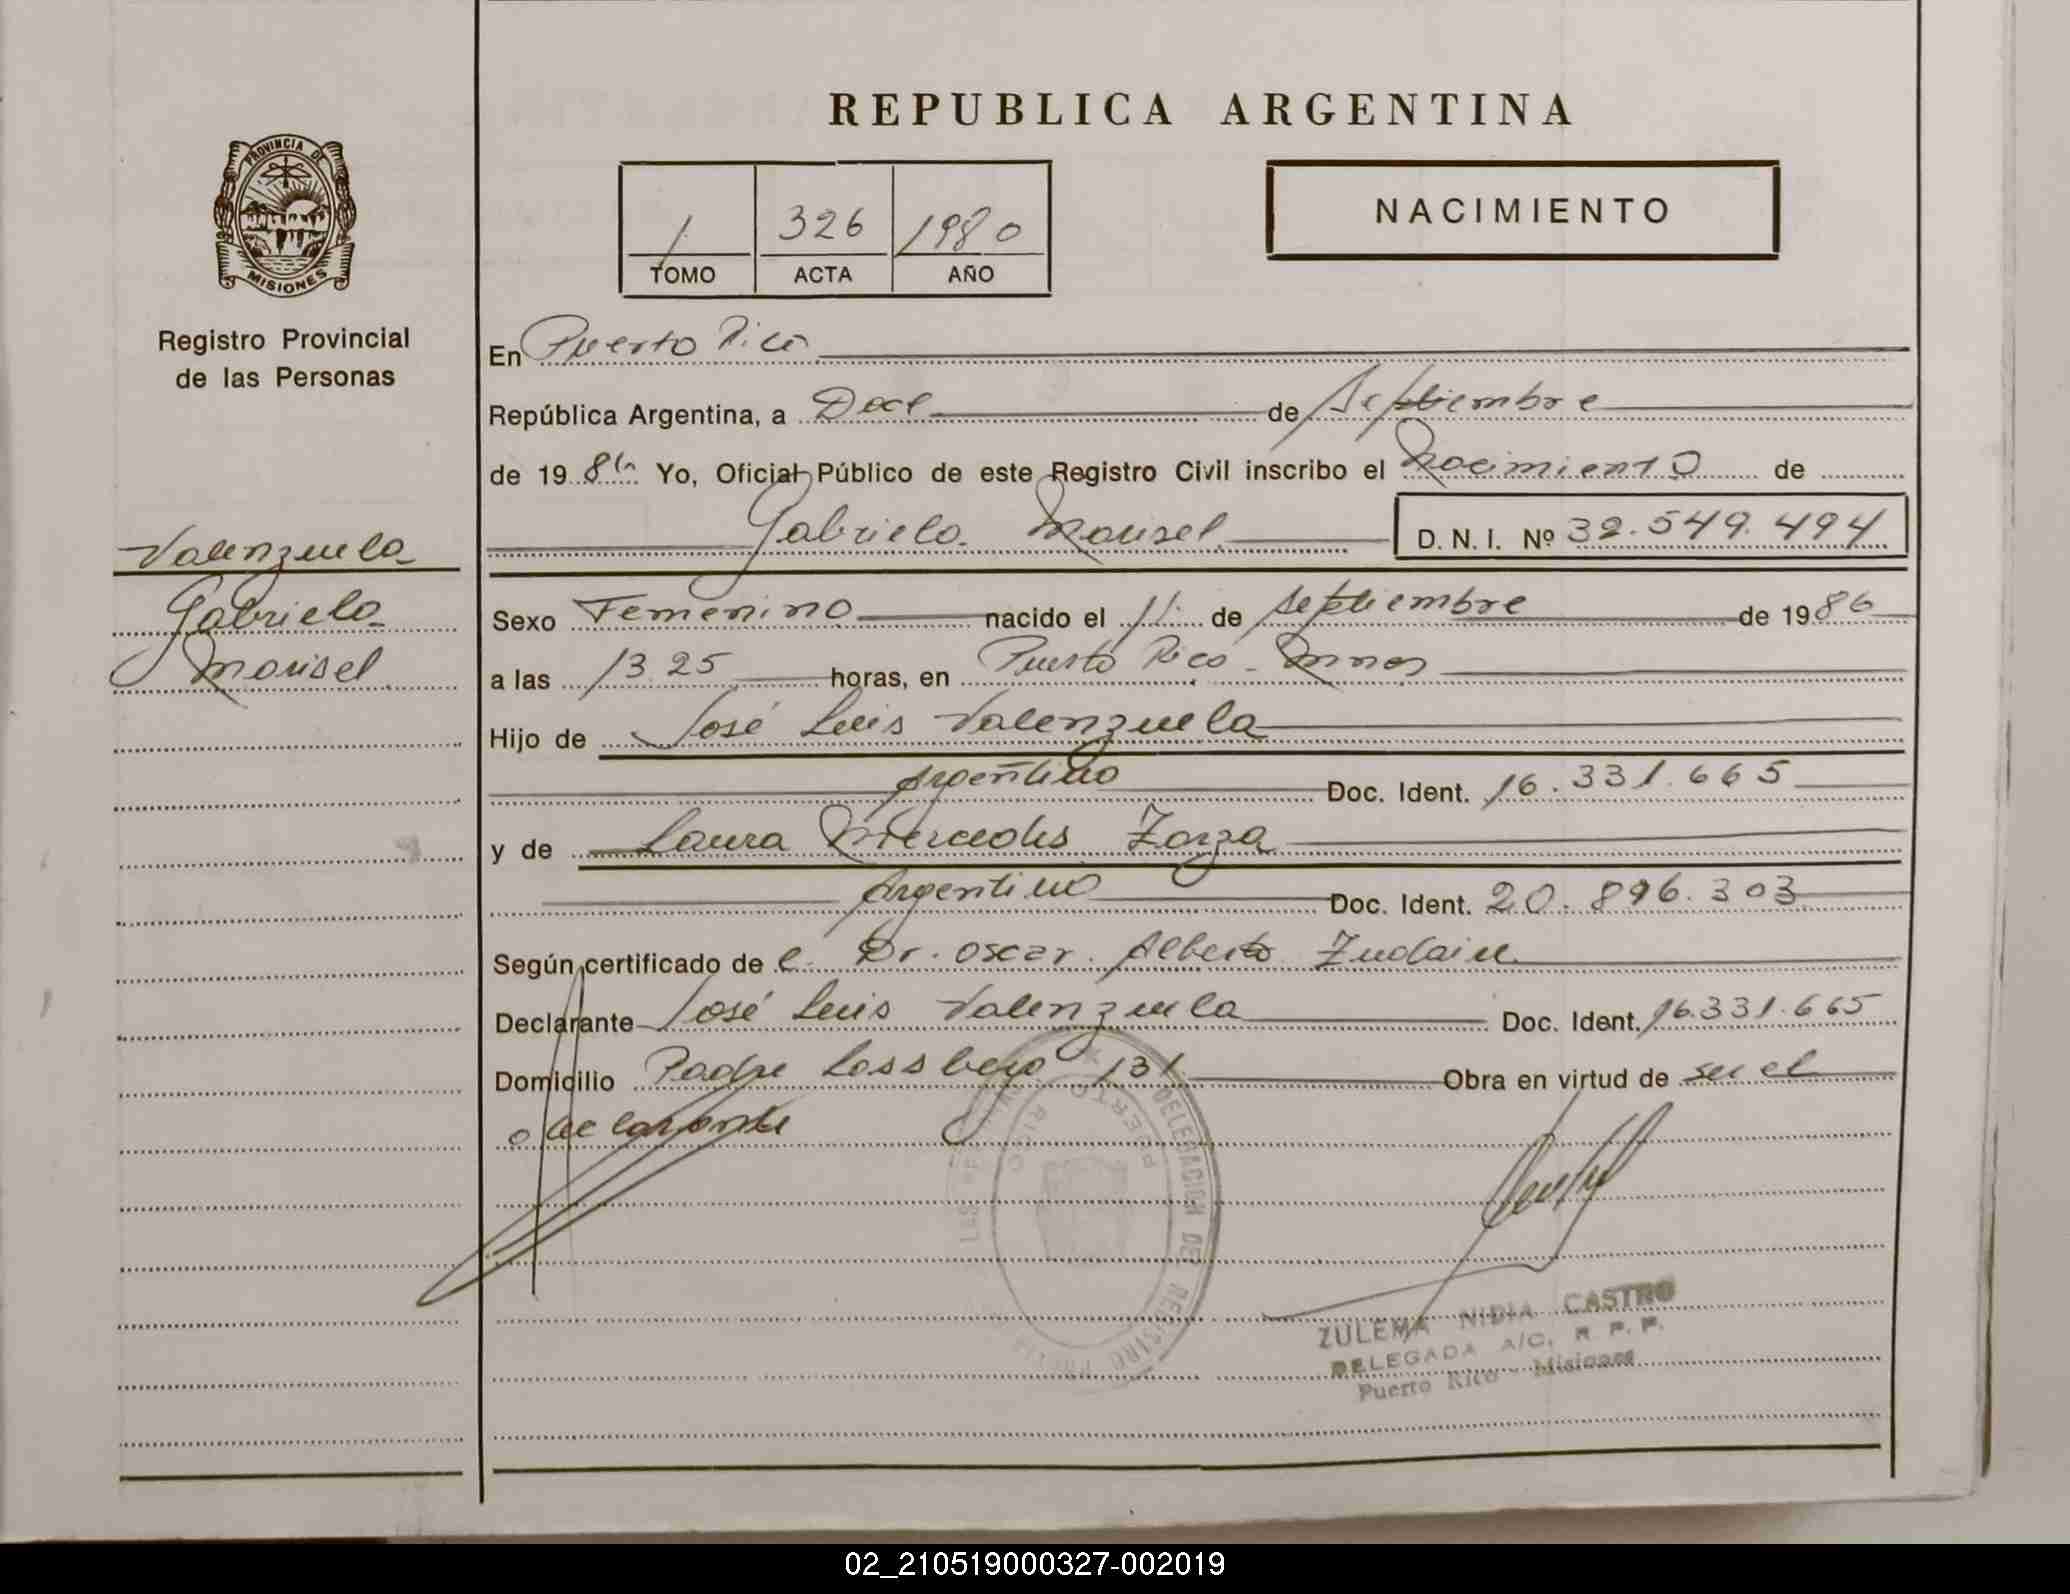 REPUBLICA ARGENTINA
PROVINCIA DE
MISIONES
Registro Provincial
de las Personas
1 326 1980
TOMO ACTA AÑO
NACIMIENTO
En Puerto Rico
República Argentina, a Doce de Septiembre
de 19 86 Yo, Oficial Público de este Registro Civil inscribo el Nacimiento de
Gabriela Marisel D. N. I. Nº 32.549.494
Valenzuela
Gabriela
Marisel
Sexo Femenino nacido el 11 de Septiembre de 19 86
a las 13.25 horas, en Puerto Rico - Mnes
Hijo de José Luis Valenzuela
Argentino Doc. Ident. 16.331.665
y de Laura Mercedes Zorza
Argentina Doc. Ident. 20.896.303
Según certificado de e. Dr. Oscar Alberto
Declarante José Luis Valenzuela Doc. Ident. 16.331.665
Domicilio Padre 131 Obra en virtud de ser el
declarante
DELEGACION DEL REGISTRO
PUERTO RICO
ZULEMA NIDIA CASTRO
DELEGADA A/C. R. P. P.
Puerto Rico - Misiones
02_210519000327-002019